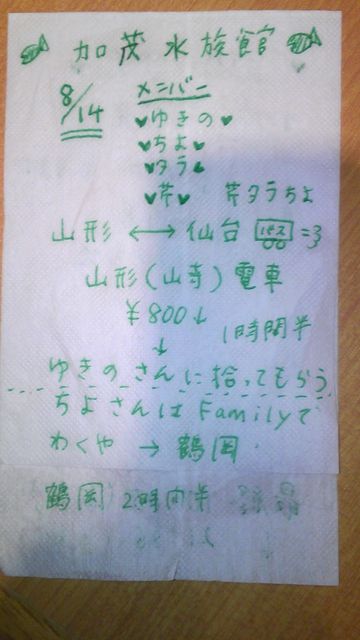 加茂水族館
8/14
メンバー
♥ゆきの♥
♥ちよ♥
♥タラ♥
♥芹♥ 芹タラちよ
山形 ↔ 仙台 バス =3
山形(山寺)電車
¥800↓ 1時間半
↓
ゆきのさんに拾ってもらう
ちよさんはFamilyで
わくや → 鶴岡
鶴岡 2時間半